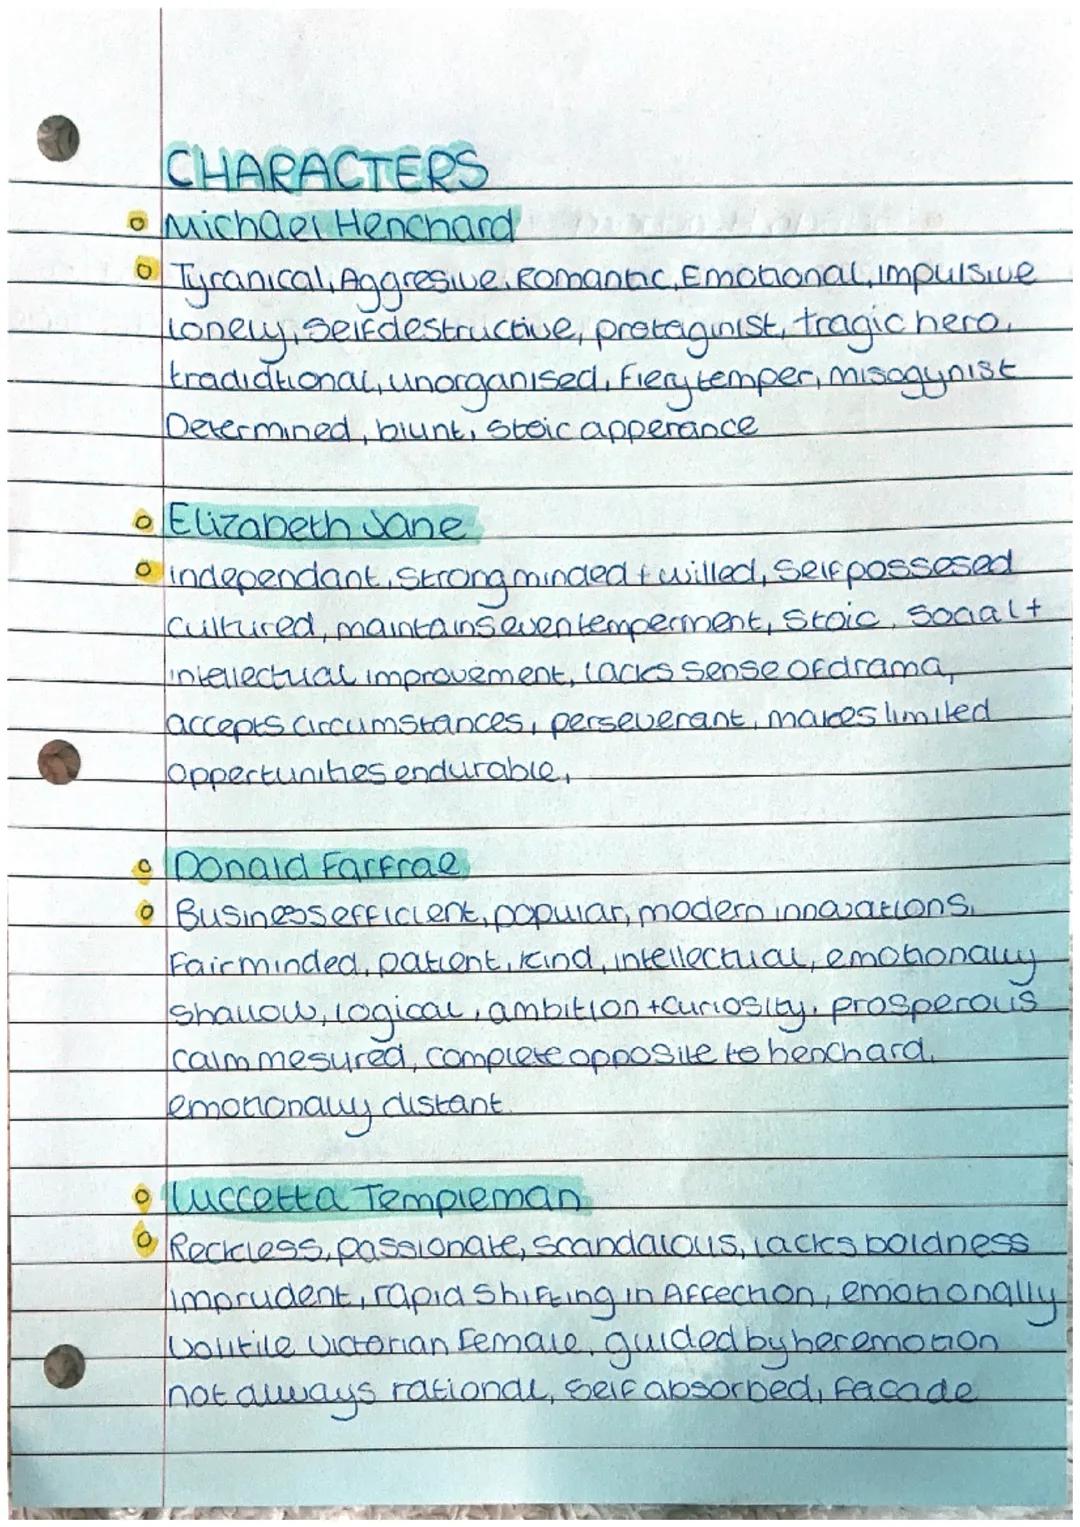 CHARACTERS
Michael Henchard
Tyranical, Aggresive, Romantic, Emotional, impulsive
lonely, selfdestructive, protaginist, tragic hero,
tradidtional, unorganised, fiery temper, misogynist
Determined, blunt, stoic apperance
Elizabeth Jane
independant, strong minded + willed, self possesed
cultured, maintains even temperment, stoic, social +
intellectual improvement, lacks sense of drama,
accepts circumstances, perseverant, makes limited
oppertunities endurable,
Donald Farfrae
Business efficient, popular, modern innovations,
Fairminded, patient, kind, intellectual, emotionally
shallow, logical, ambition + curiosity, prosperous
calm mesured, complete opposite to henchard,
emotionally distant
Luccetta Templeman
Reckless, passionate, scandalous, lacks boldness
imprudent, rapid shifting in Affection, emotionally
volitile victorian female, guided by her emotion
not always rational, self absorbed, facade